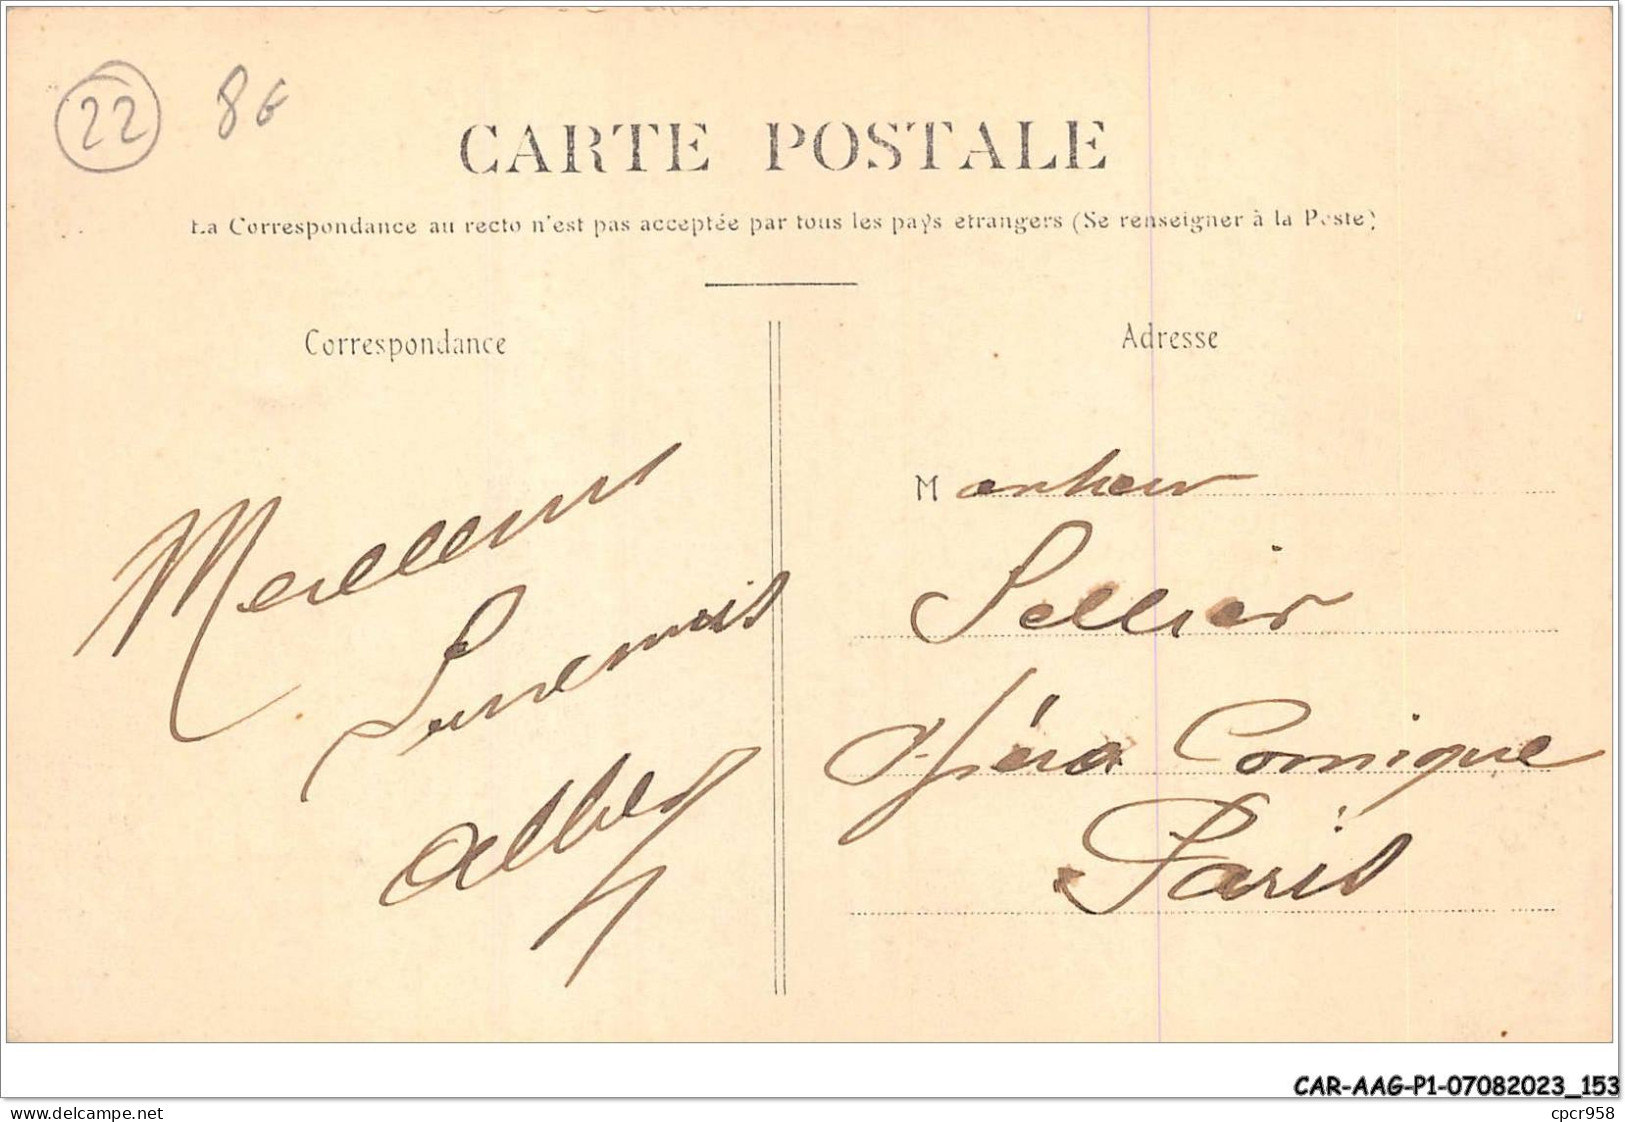 22 8€
CARTE POSTALE
La Correspondance au recto n'est pas acceptée par tous les pays etrangers (Se renseigner à la Poste)
Correspondance
Adresse
Meilleurs
Albert
Monsieur
Sellier
Opéra Comique
Paris
CAR-AAG-P1-07082023_153
www.delcampe.net
cpcr958